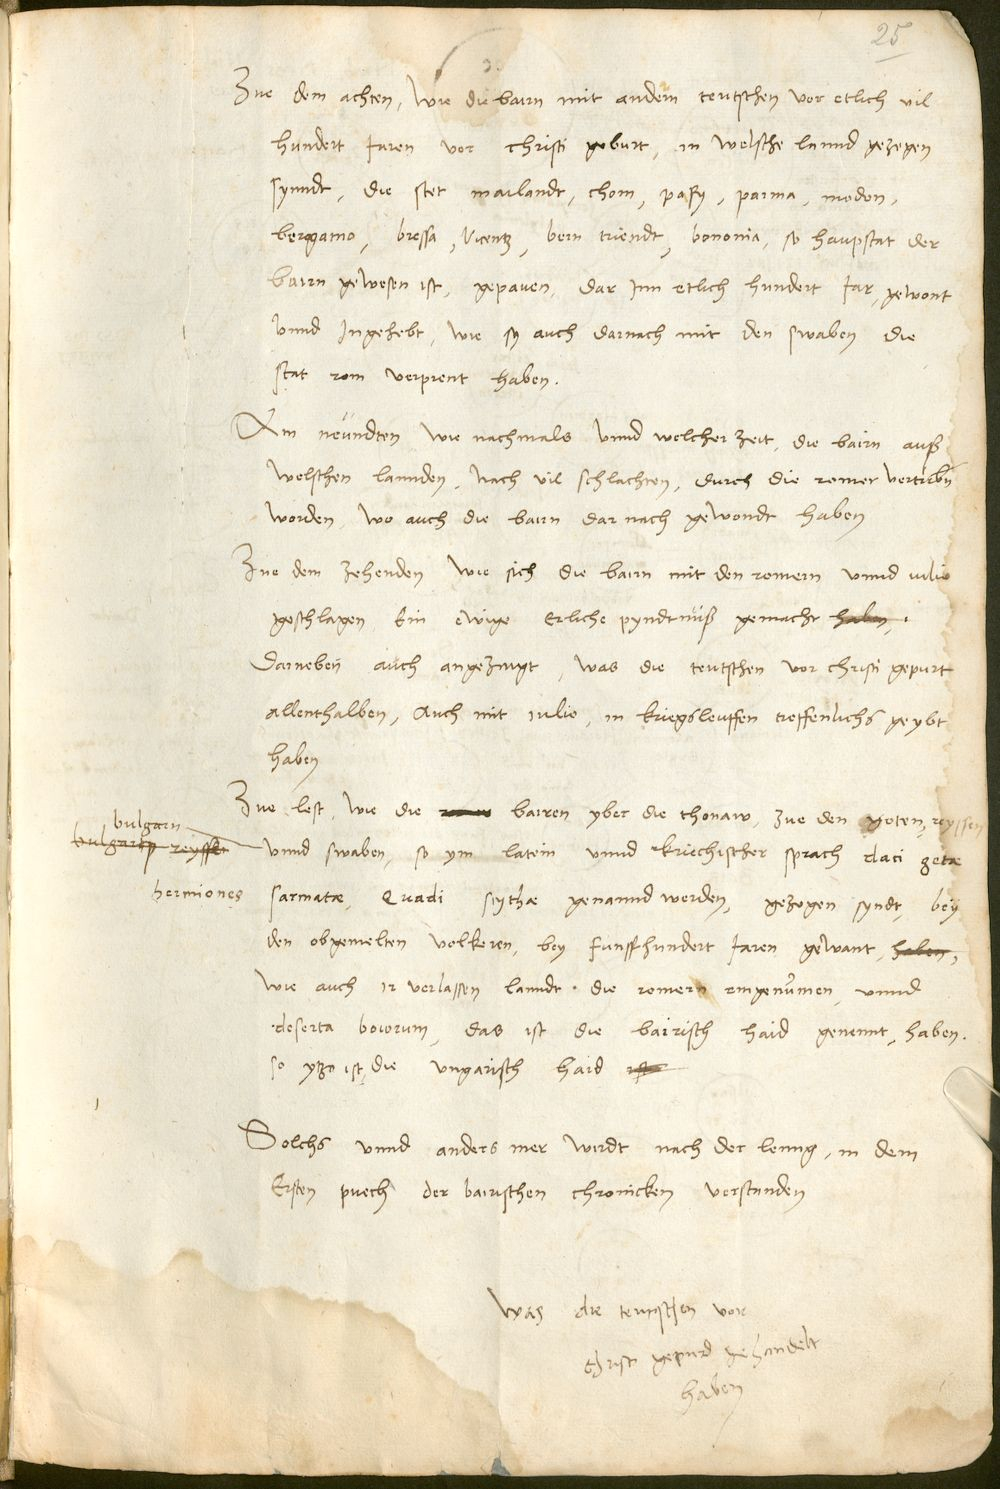 25
Zue dem achten, wie die bairn mit andern teutschen vor etlich vil
hundert Jaren vor christi geburt, in welsche lannd gezogen
synndt, die stet mailandt, chom, pafy, parma, moden,
bergamo, bressa, vicentz, bern triendt, bononia, so haupstat der
bairn gewesen ist, gepauen, dar Inn etlich hundert Jar, gewont
vnnd Ingehebt, wie sy auch darnach mit den swaben die
stat rom verprent haben.
Am neündten wie nachmals vnnd welcher zeit, die bairn auß
welschen lannden, nach vil schlachten, durch die romer vertribn
worden, wo auch die bairn dar nach gewondt haben
Zue dem zehenden wie sich die bairn mit den romern vnnd iulio
geschlagen Ein ewige Erliche pyndtnüß gemacht haben.
Darneben auch angezaigt, was die teutschen vor christi gepurt
allenthalben, Auch mit iulio, in kriegsleuffen treffenlichs geybt
haben
Zue lest, wie die bairen yber die thonaw, zue den goten, reyssen
bulgarn
bulgarn reyssen
vnnd swaben, so ym latein vnnd kriechischer sprach daci getæ
hermiones
sarmatæ, Quadi scythæ genannd werden, gezogen syndt, bey
den obgemelten volkeren, bey funffhundert Jaren gewant, haben,
wie auch ir verlassen lanndt. die romern eingenumen, vnnd
deserta boiorum, das ist die bairisch haid genennt, haben.
so ytzo ist, die vngarisch haid ist
Solchs vnnd anders mer wirdt nach der leng, in dem
Ersten puech der bairischen chronicken verstanden
Was die teutschen vor
christ gepurd gehandelt
haben